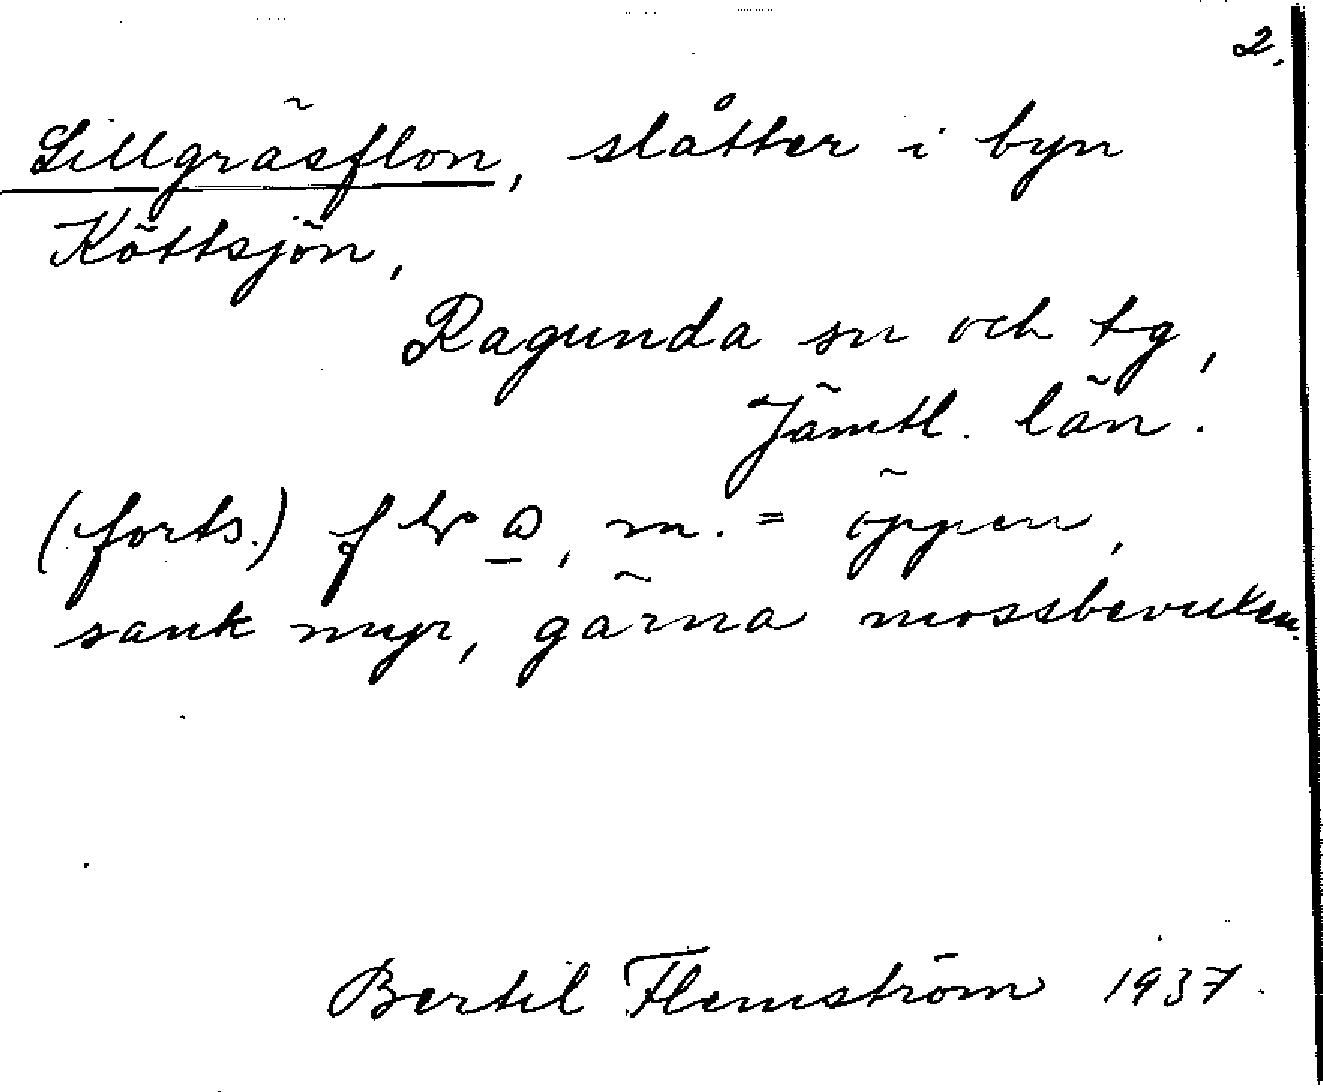 2.
Lillgräsflon, slåtter i byn
Köttsjön,
Ragunda sn och tg,
Jämtl. län.
(forts.) , m. = öppen,
sank myr, gärna mossbevuxen.
Bertil Flemström 1937.